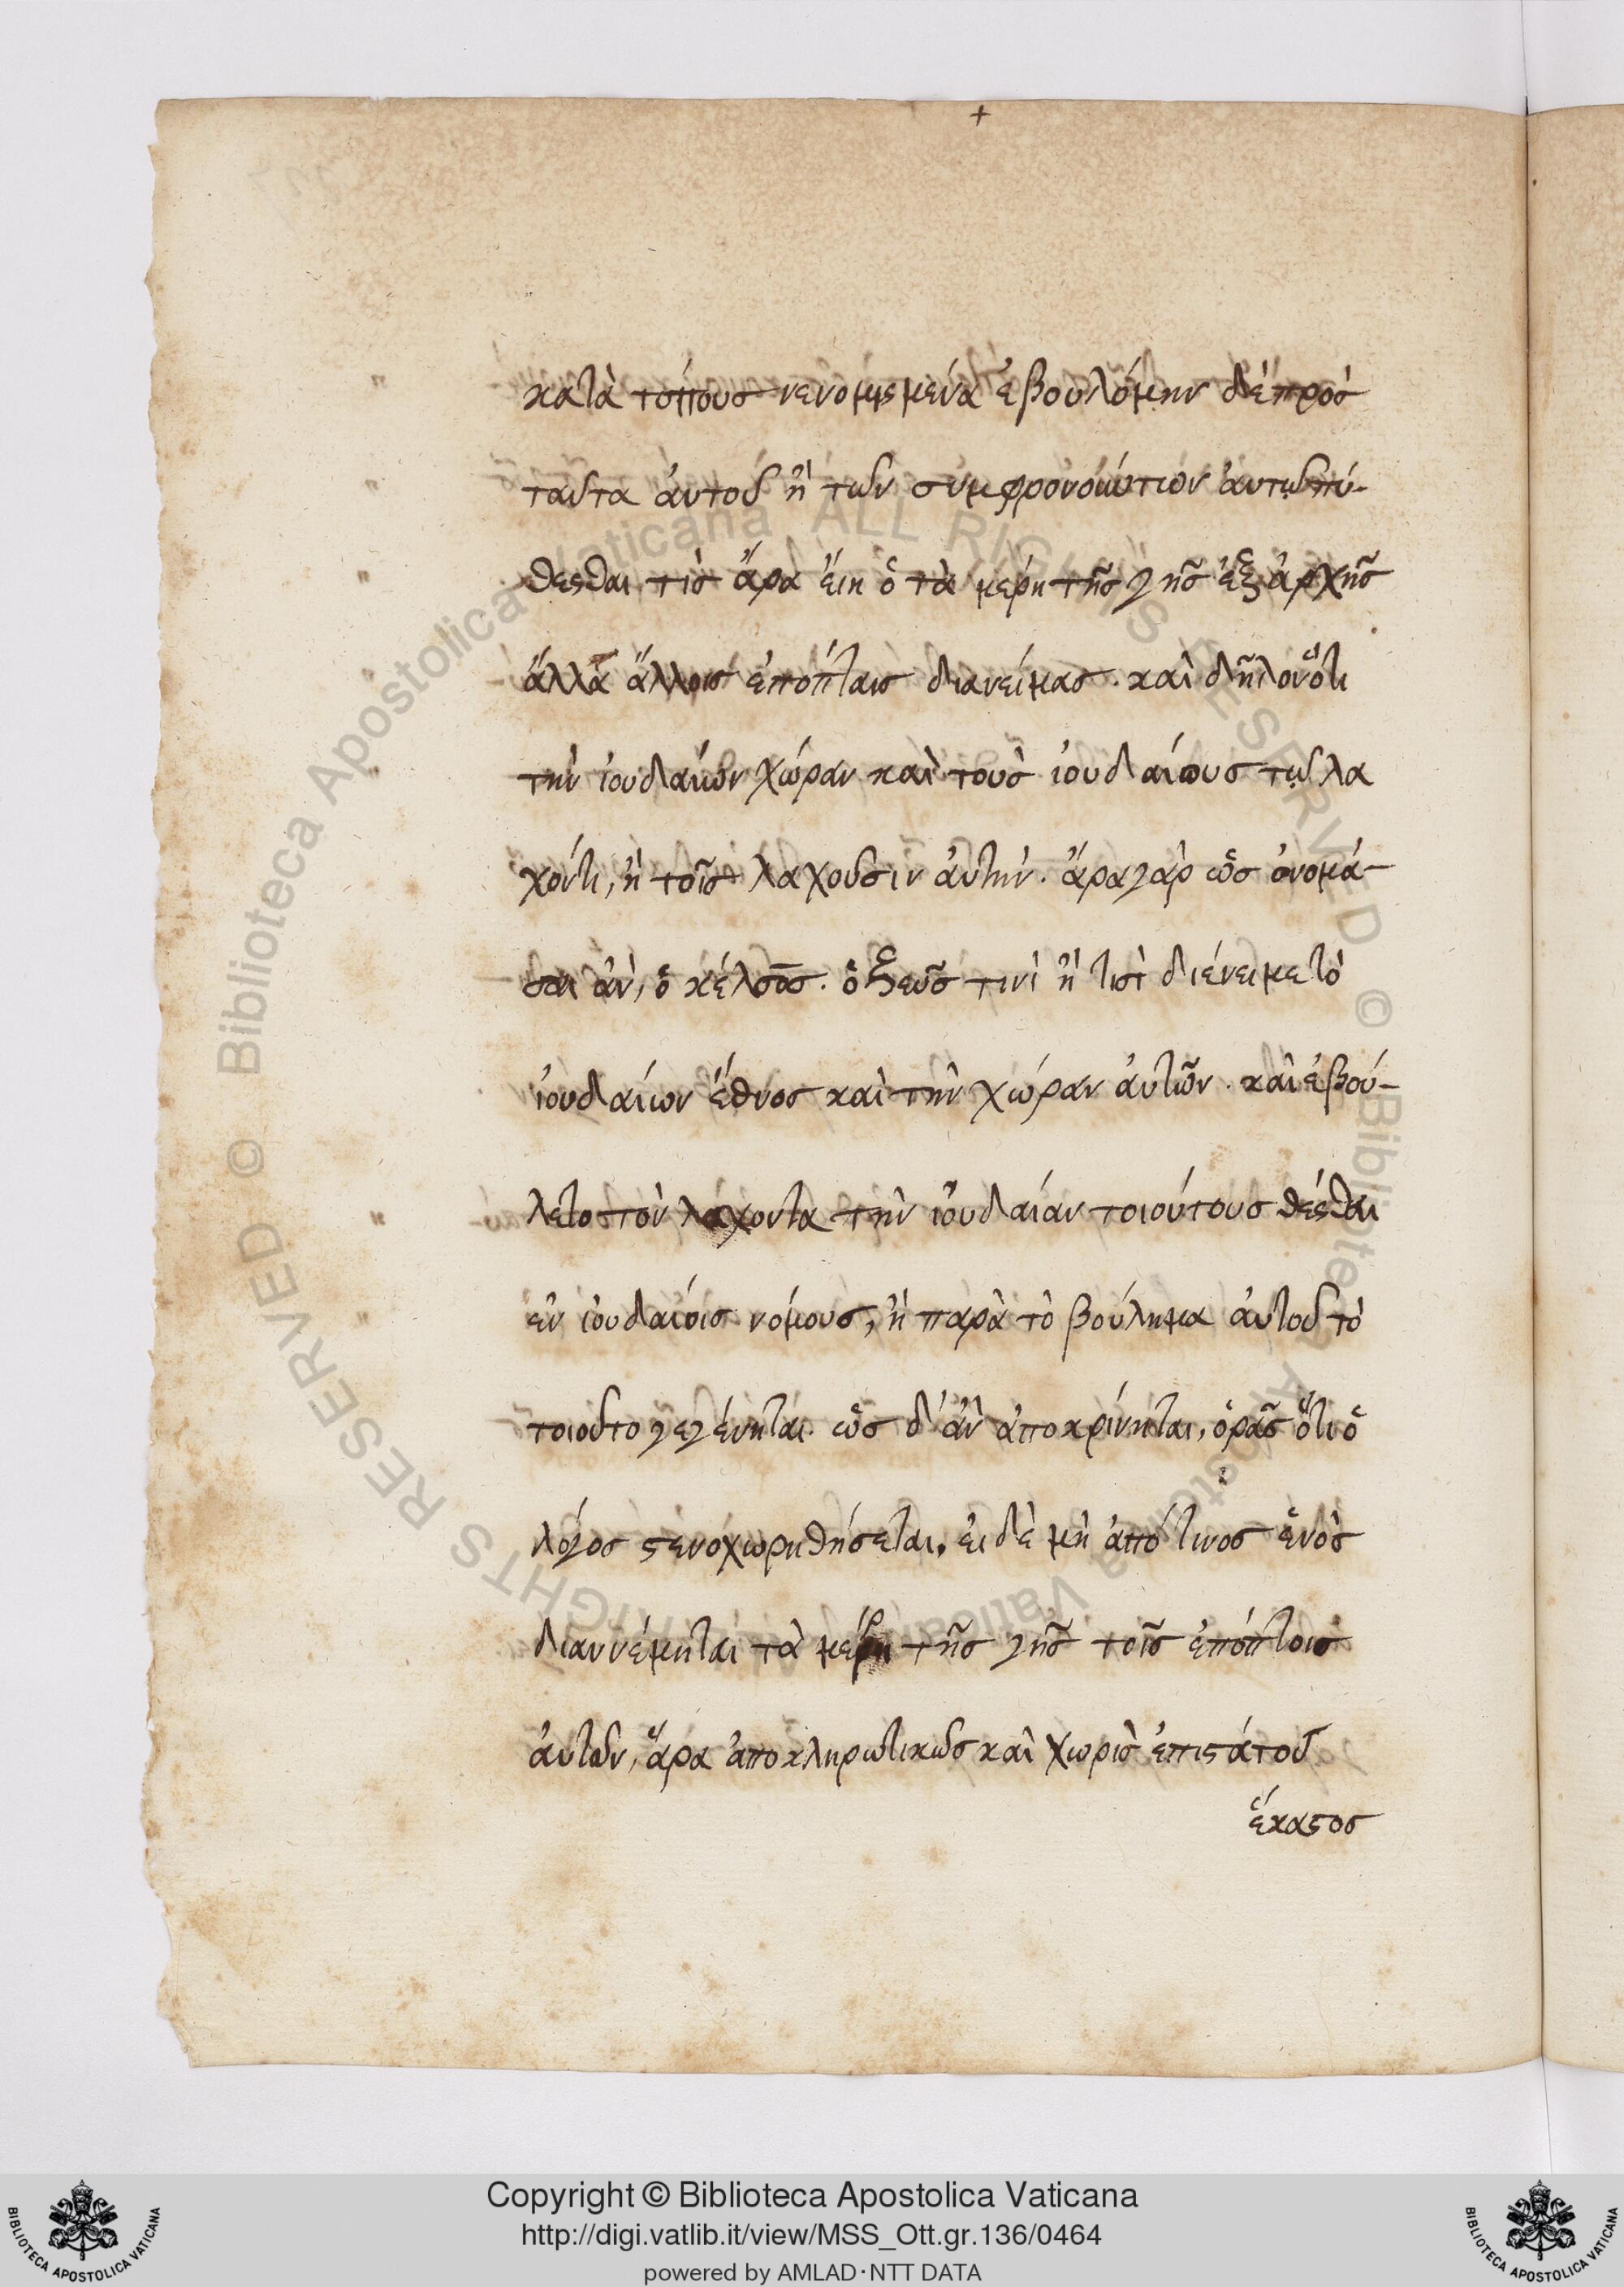 +
κατὰ τόπους νενομισμένα ἐβουλόμην δὲ πρὸς
ταῦτα ἀυτοῦ ἢ τῶν συμφρονούντων ἀυτῷ πύ-
θεσθαι, τίς ἄρα ἔιη ὁ τὰ μέρη τῆς γῆς ἐξ ἀρχῆς
ἄλλα ἄλλοις ἐπόπταις διανείμας. καὶ δῆλον ὅτι
τὴν ἰουδαίων χώραν καὶ τοὺς ἰουδαίους τῷ λα
χόντι, ἢ τοῖς λαχοῦσιν ἀυτήν. ἄρα γὰρ ὡς ὀνομά-
σαι ἂν, ὁ κέλσος. ὁ ζεῦς τινὶ ἢ τισὶ διένειμε τὸ
ἰουδαίων ἔθνος καὶ τὴν χώραν ἀυτῶν. καὶ ἐβού-
λετο τὸν λαχόντα τὴν ἰουδαίαν τοιούτους θέσθαι
ἐν ἰουδαίοις νόμους, ἢ παρὰ τὸ βούλημα ἀυτοῦ τὸ
τοιοῦτο γεγένηται. ὡς δ' ἂν ἀποκρίνηται, ὁρᾷς ὅτι ὁ
λόγος στενοχωρηθήσεται. ἐι δὲ μὴ ἀπό τινος ἑνὸς
διαννέμηται τὰ μέρη τῆς γῆς τοῖς ἐπόπτοις
ἀυτῶν, ἄρα ἀποκληρωτικῶς καὶ χωρὶς ἐπιστάτου
ἕκαστος
Copyright © Biblioteca Apostolica Vaticana
http://digi.vatlib.it/view/MSS_Ott.gr.136/0464
powered by AMLAD·NTT DATA